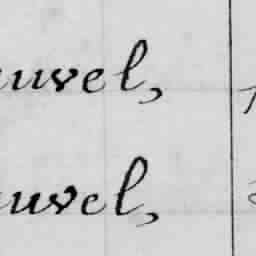 auvel,
auvel,